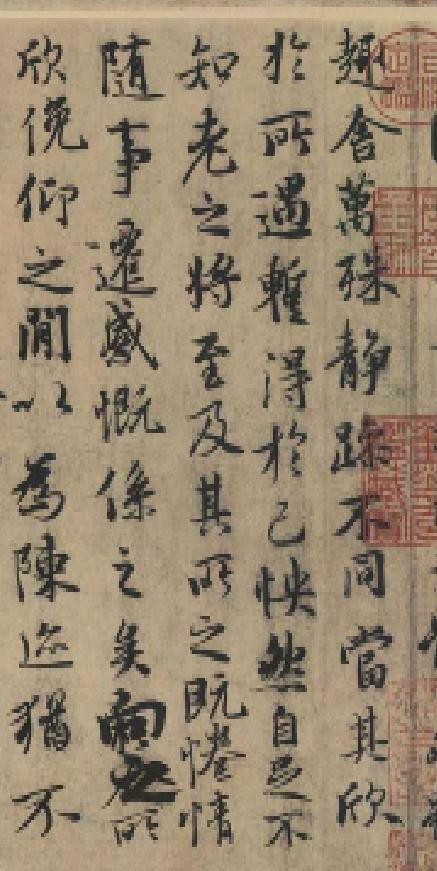 趣舍萬殊静躁不同當其欣
於所遇暫得於己怏然自足不
知老之將至及其所之既惓情
隨事遷感慨係之矣向之所
欣俛仰之閒以爲陳迹猶不